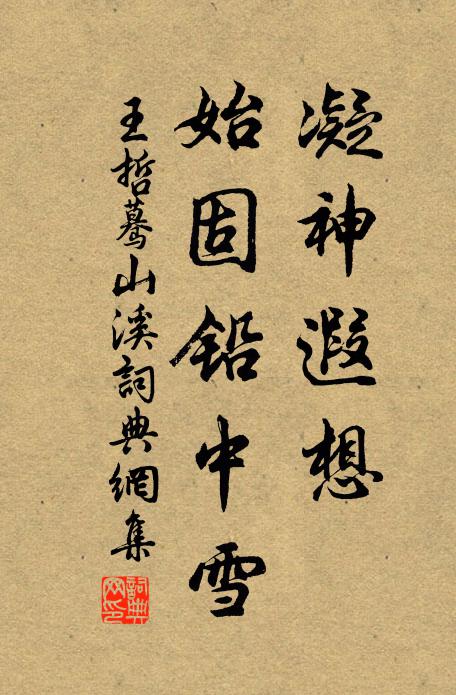 凝神遐想
始固铅中雪
王哲蓦山溪詞典網集
詞典
网印